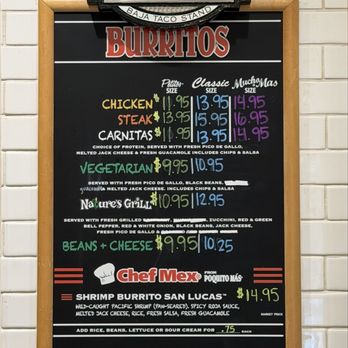 BAJA TACO STAND
BURRITOS
Plain SIZE Classic SIZE Mucho Mas SIZE
CHICKEN $11.95 13.95 14.95
STEAK $13.95 15.95 16.95
CARNITAS $11.95 13.95 14.95
CHOICE OF PROTEIN, SERVED WITH FRESH PICO DE GALLO,
MELTED JACK CHEESE & FRESH GUACAMOLE INCLUDES CHIPS & SALSA
VEGETARIAN $9.95 10.95
SERVED WITH FRESH PICO DE GALLO, BLACK BEANS,
guacamole MELTED JACK CHEESE. INCLUDES CHIPS & SALSA
Nature's Grill $10.95 12.95
SERVED WITH FRESH GRILLED ZUCCHINI, RED & GREEN
BELL PEPPER, RED & WHITE ONION, BLACK BEANS, JACK CHEESE,
FRESH PICO DE GALLO INCLUDES CHIPS & SALSA
BEANS + CHEESE $9.95 10.25
Chef Mex FROM POQUITO MÁS
SHRIMP BURRITO SAN LUCAS™ $14.95
WILD-CAUGHT PACIFIC SHRIMP (PAN-SEARED), SPICY ROJA SAUCE, MARKET PRICE
MELTED JACK CHEESE, RICE, FRESH SALSA, FRESH GUACAMOLE
ADD RICE, BEANS, LETTUCE OR SOUR CREAM FOR .75 EACH